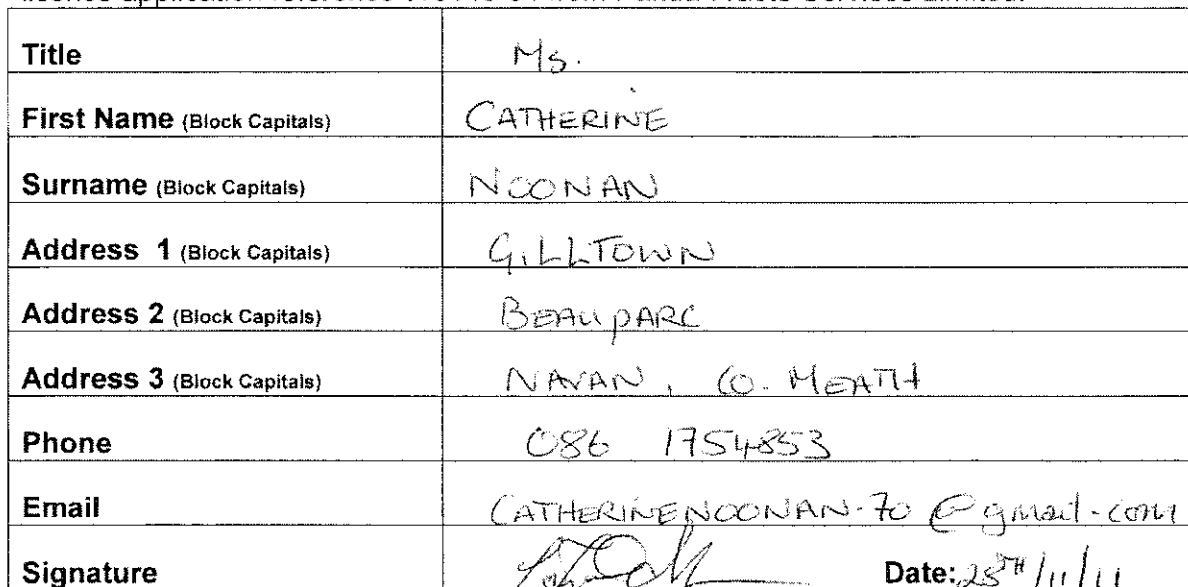 Title Ms.
First Name (Block Capitals) CATHERINE
Surname (Block Capitals) NOONAN
Address 1 (Block Capitals) GILLTOWN
Address 2 (Block Capitals) BEAUPARC
Address 3 (Block Capitals) NAVAN, CO. MEATH
Phone 086 1754853
Email CATHERINENOONAN-70@gmail.com
Signature Date: 28TH/11/11